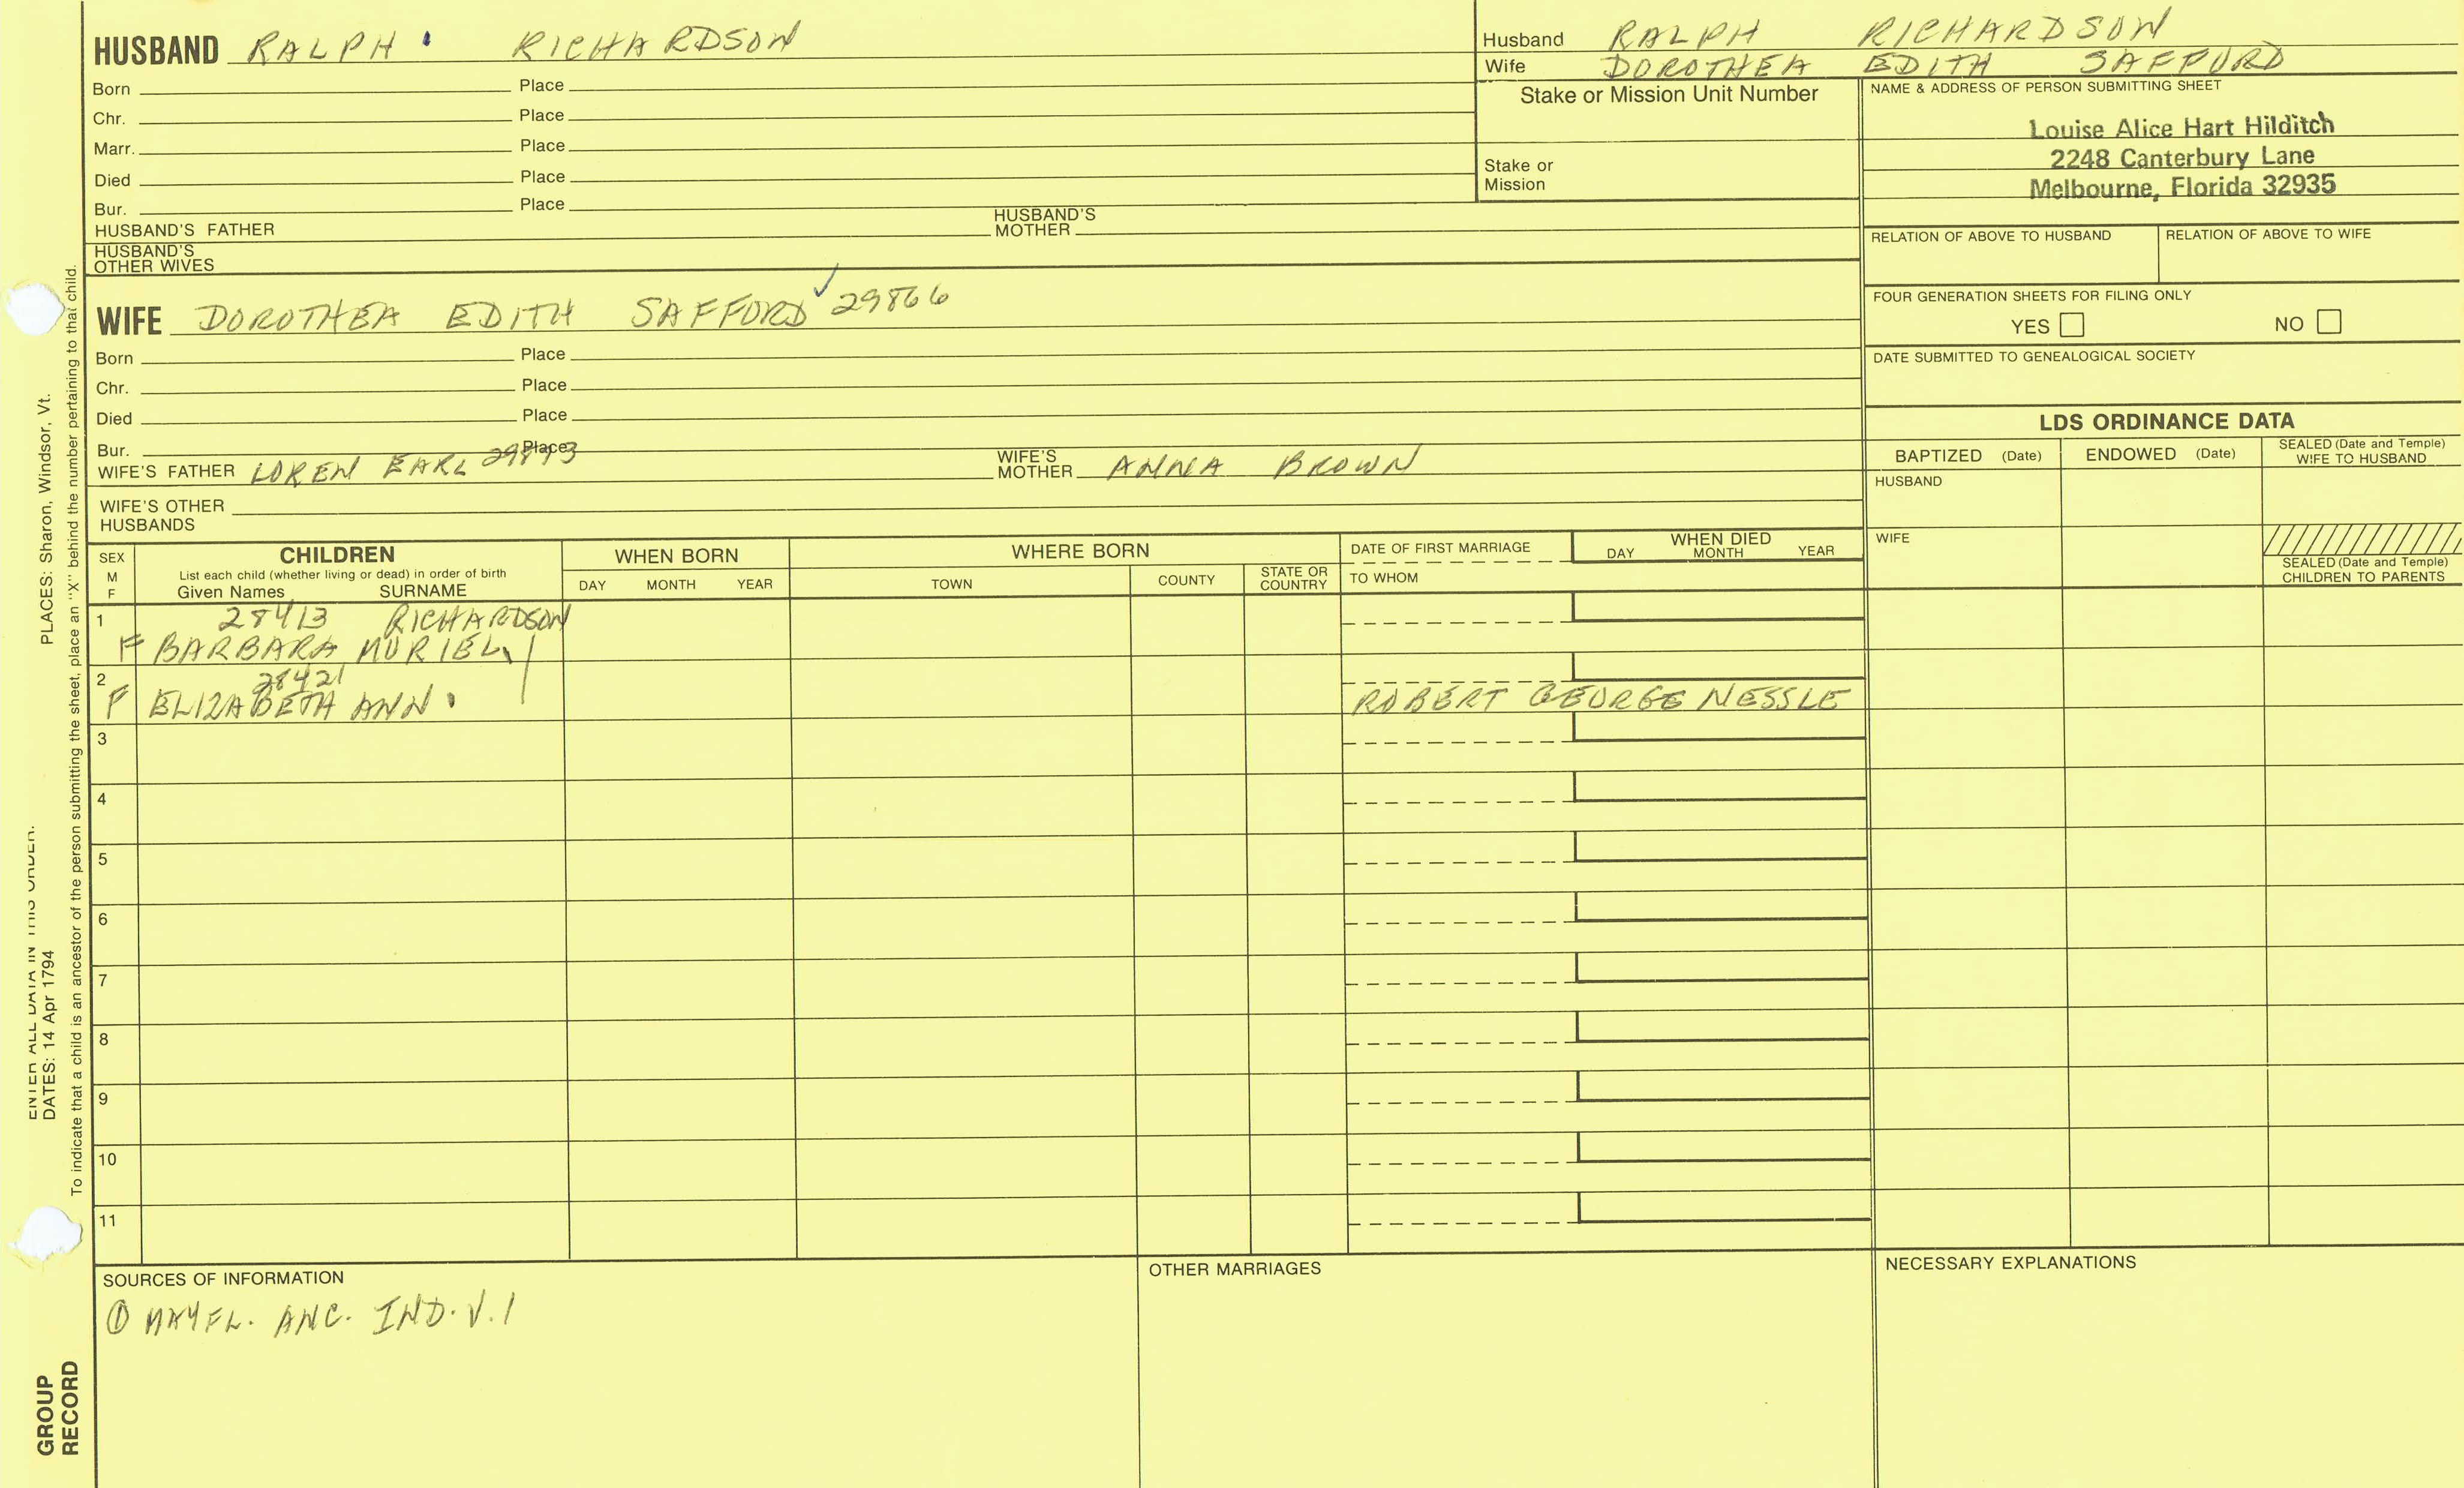 HUSBAND RALPH RICHARDSON
Born Place
Chr. Place
Marr. Place
Died Place
Bur. Place
HUSBAND'S FATHER HUSBAND'S MOTHER
HUSBAND'S OTHER WIVES
Husband RALPH RICHARDSON
Wife DOROTHEA EDITH SAFFORD
Stake or Mission Unit Number
Stake or
Mission
NAME & ADDRESS OF PERSON SUBMITTING SHEET
Louise Alice Hart Hilditch
2248 Canterbury Lane
Melbourne, Florida 32935
RELATION OF ABOVE TO HUSBAND RELATION OF ABOVE TO WIFE
FOUR GENERATION SHEETS FOR FILING ONLY
YES NO
DATE SUBMITTED TO GENEALOGICAL SOCIETY
WIFE DOROTHEA EDITH SAFFORD 29866
Born Place
Chr. Place
Died Place
Bur. Place
WIFE'S FATHER LOREN EARL WIFE'S MOTHER ANNA BROWN
WIFE'S OTHER
HUSBANDS
LDS ORDINANCE DATA
BAPTIZED (Date) ENDOWED (Date) SEALED (Date and Temple) WIFE TO HUSBAND
HUSBAND
WIFE
SEALED (Date and Temple)
CHILDREN TO PARENTS
SEX M F
CHILDREN
List each child (whether living or dead) in order of birth
Given Names SURNAME
WHEN BORN
DAY MONTH YEAR
WHERE BORN
TOWN COUNTY STATE OR COUNTRY
DATE OF FIRST MARRIAGE
TO WHOM
WHEN DIED
DAY MONTH YEAR
1 28413 RICHARDSON
F BARBARA MURIEL
2 28421
F ELIZABETH ANN ROBERT GEORGE NESSLE
3
4
5
6
7
8
9
10
11
SOURCES OF INFORMATION
① MAYFL. ANC. IND. V. 1
OTHER MARRIAGES
NECESSARY EXPLANATIONS
PLACES: Sharon, Windsor, Vt.
ENTER ALL DATA IN THIS ORDER:
DATES: 14 Apr 1794
To indicate that a child is an ancestor of the person submitting the sheet, place an "X" behind the number pertaining to that child.
GROUP
RECORD